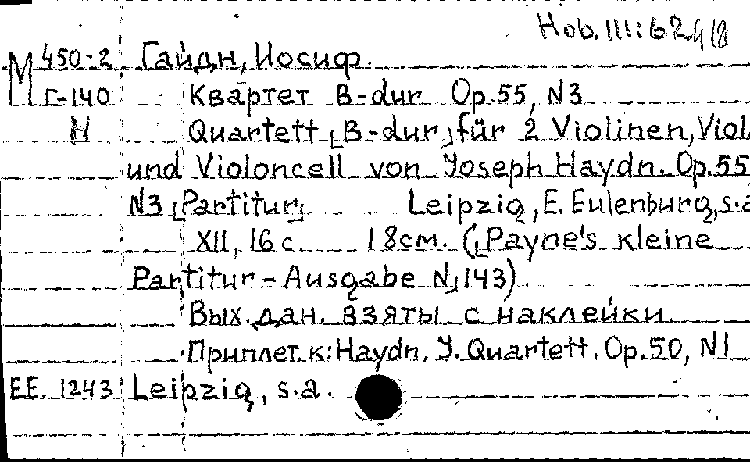 Hob.III:62
М 450-2 Гайдн, Иосиф.
Г-140 Квартет B-dur Op.55, N3
H Quartett [B-dur] für 2 Violinen, Viol.
und Violoncell von Joseph Haydn. Op.55
N3 [Partitur] Leipzig, E. Eulenburg, s.a
XII, 16 с. 18см. ([Payne's kleine
Partitur-Ausgabe N] 143)
Вых. дан. взяты с наклейки.
Приплет. к: Haydn, J. Quartett. Op.50, N1
EE. 1243 Leipzig, s.a.